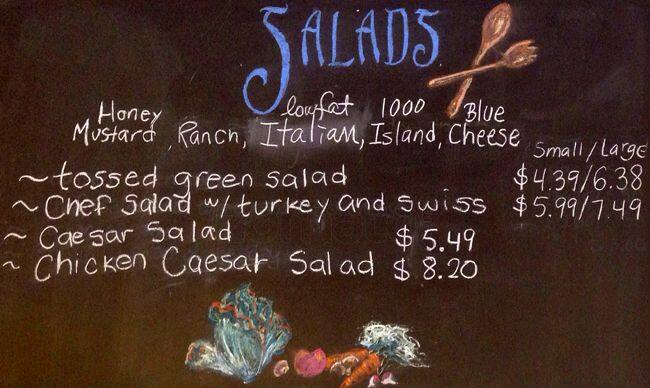 SALADS
Honey lowfat 1000 Blue
Mustard, Ranch, Italian, Island, Cheese
Small/Large
~ tossed green salad $4.39/6.38
~ Chef Salad w/ turkey and swiss $5.99/7.49
~ Caesar Salad $5.49
~ Chicken Caesar Salad $8.20